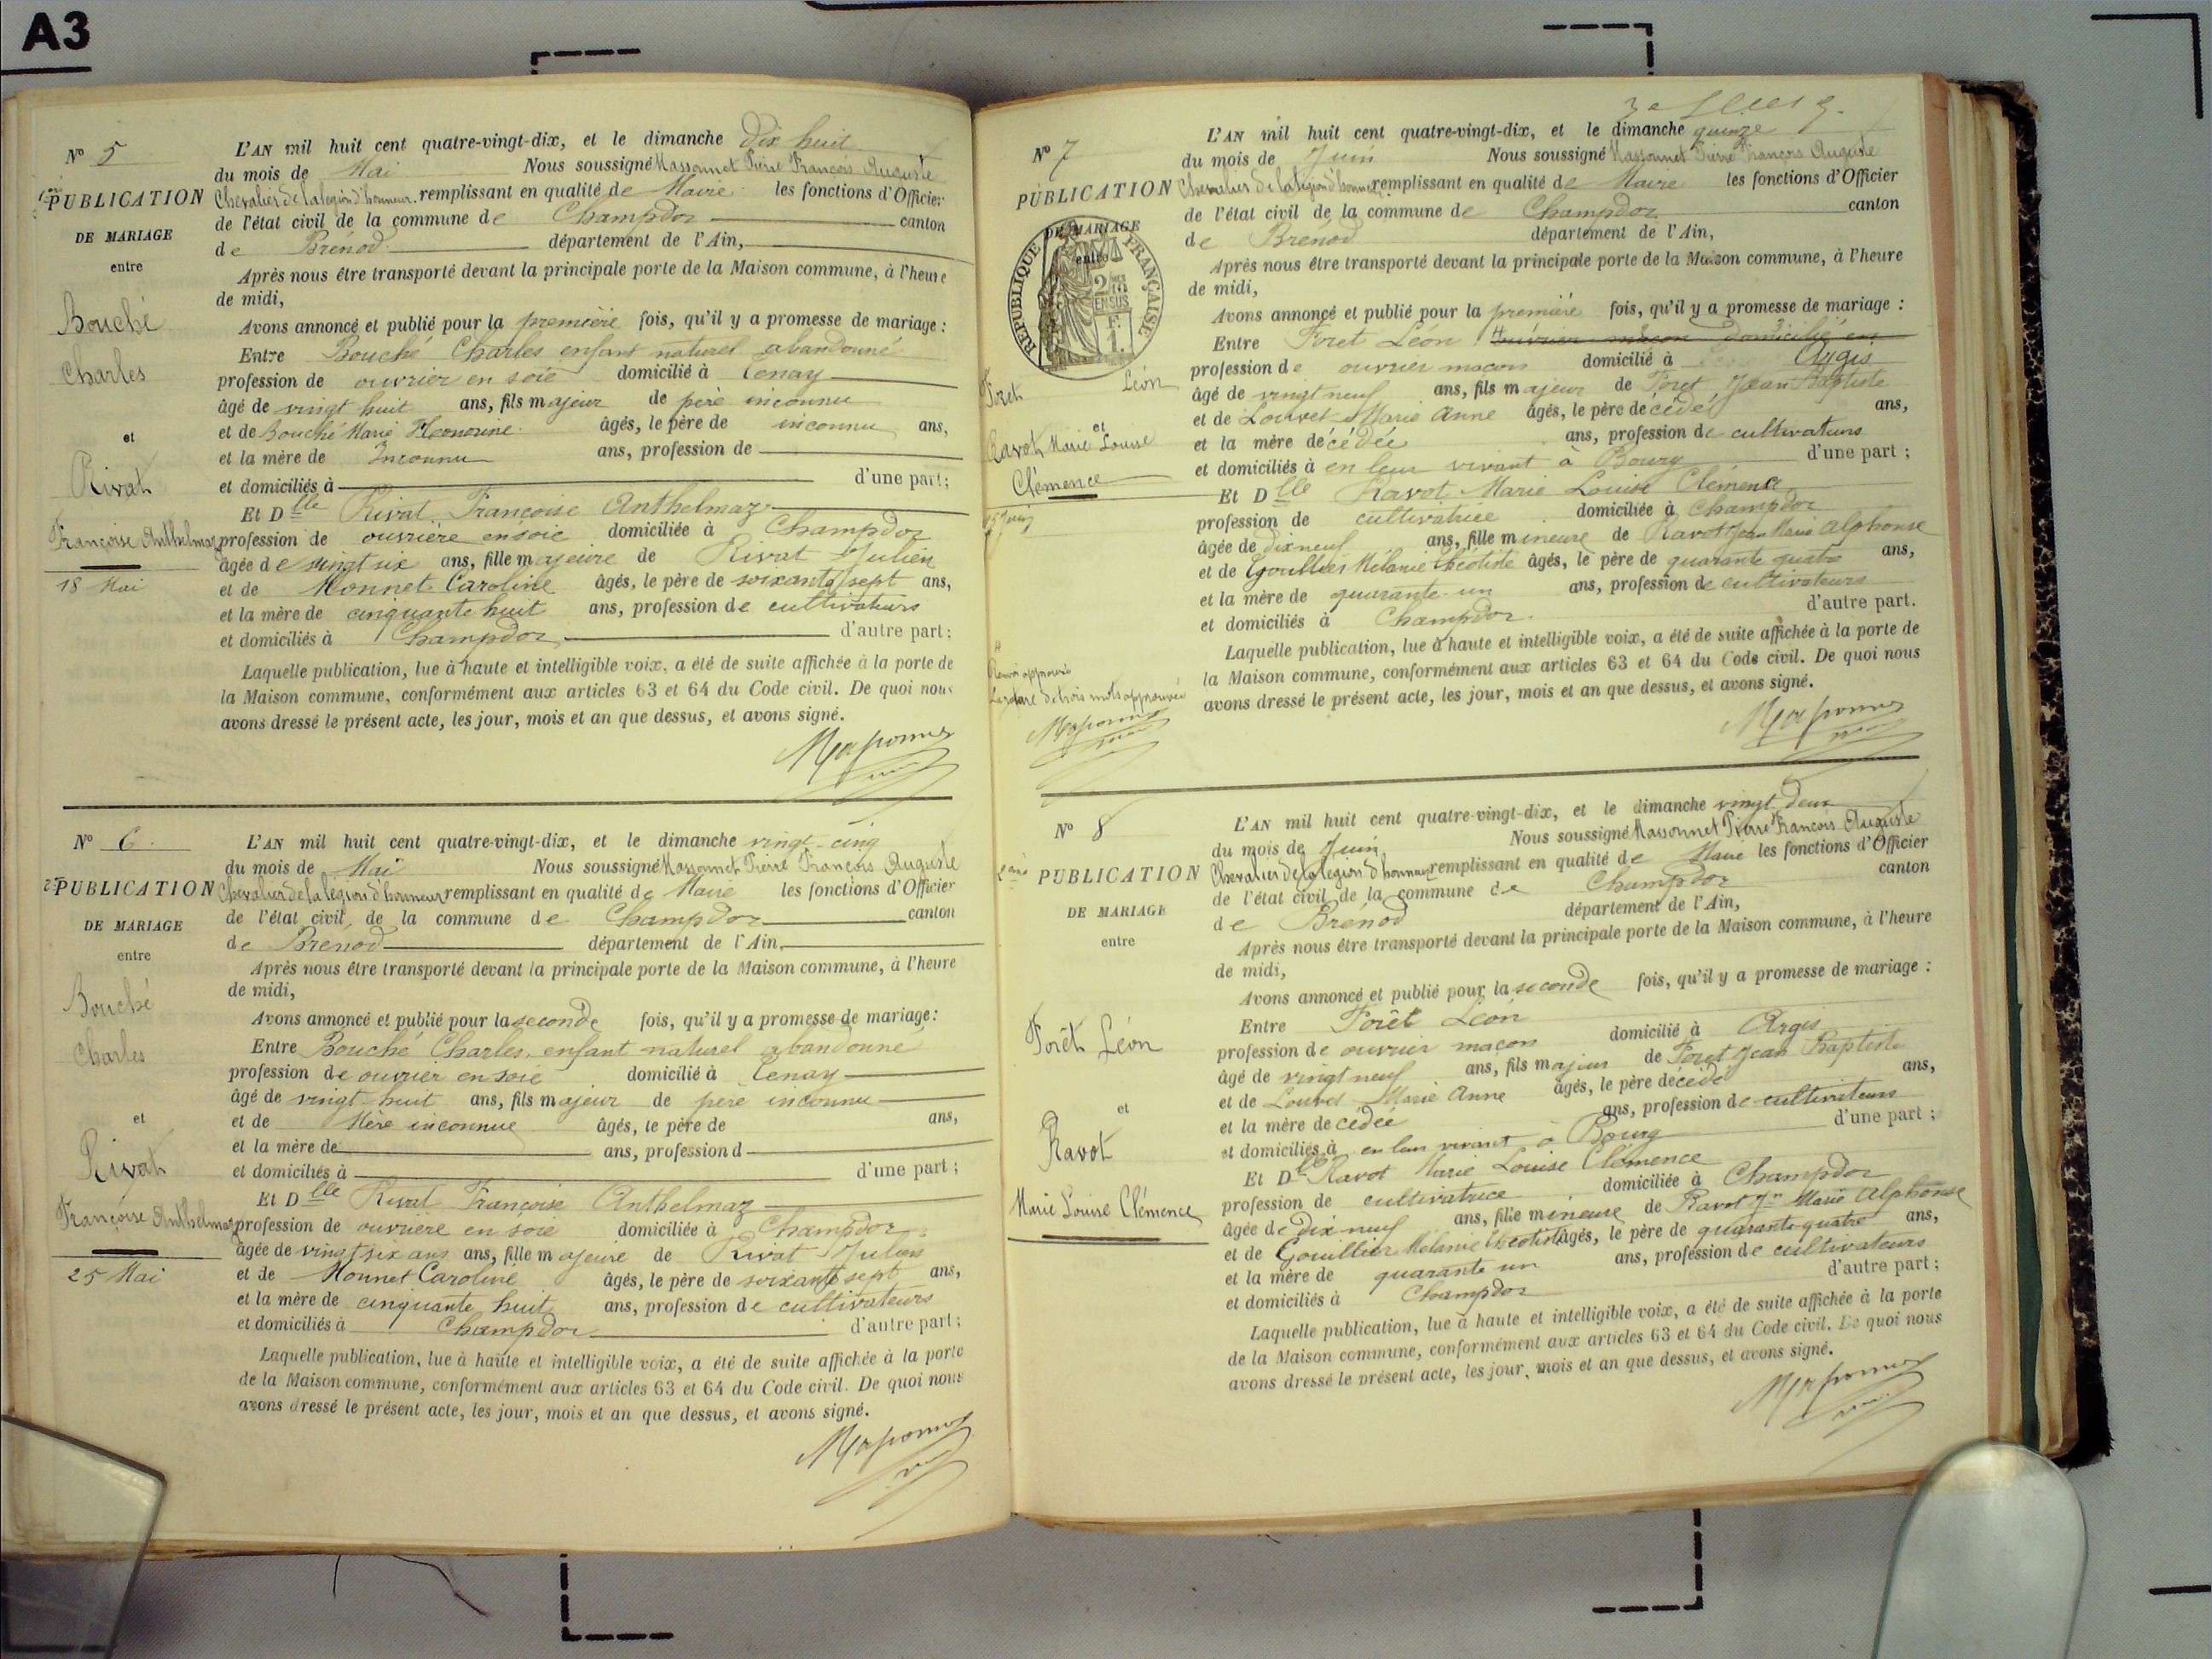 A3
N° 5
1ère PUBLICATION
DE MARIAGE
entre
Bouché
Charles
et
Rivat
Françoise Anthelmaz
18 Mai
L'AN mil huit cent quatre-vingt-dix, et le dimanche dix huit
du mois de Mai Nous soussigné Massonnet Pierre François Auguste
Chevalier de la légion d'honneur remplissant en qualité de Maire les fonctions d'Officier
de l'état civil de la commune de Champdor canton
de Brénod département de l'Ain,
Après nous être transporté devant la principale porte de la Maison commune, à l'heure
de midi,
Avons annoncé et publié pour la première fois, qu'il y a promesse de mariage :
Entre Bouché Charles enfant naturel abandonné
profession de ouvrier en soie domicilié à Tenay
âgé de vingt huit ans, fils majeur de père inconnu
et de Bouché Marie âgés, le père de inconnu ans,
et la mère de Inconnu ans, profession de
et domiciliés à d'une part;
Et Dlle Rivat Françoise Anthelmaz
profession de ouvrière en soie domiciliée à Champdor
âgée de vingt six ans, fille majeure de Rivat Julien
et de Monnet Caroline âgés, le père de soixante sept ans,
et la mère de cinquante huit ans, profession de cultivateurs
et domiciliés à Champdor d'autre part;
Laquelle publication, lue à haute et intelligible voix, a été de suite affichée à la porte de
la Maison commune, conformément aux articles 63 et 64 du Code civil. De quoi nous
avons dressé le présent acte, les jour, mois et an que dessus, et avons signé.
N° 6
2e PUBLICATION
DE MARIAGE
entre
Bouché
Charles
et
Rivat
Françoise Anthelmaz
25 Mai
L'AN mil huit cent quatre-vingt-dix, et le dimanche vingt-cinq
du mois de Mai Nous soussigné Massonnet Pierre François Auguste
Chevalier de la légion d'honneur remplissant en qualité de Maire les fonctions d'Officier
de l'état civil de la commune de Champdor canton
de Brénod département de l'Ain,
Après nous être transporté devant la principale porte de la Maison commune, à l'heure
de midi,
Avons annoncé et publié pour la seconde fois, qu'il y a promesse de mariage :
Entre Bouché Charles, enfant naturel abandonné
profession de ouvrier en soie domicilié à Tenay
âgé de vingt-huit ans, fils majeur de père inconnu
et de Mère inconnue âgés, le père de ans,
et la mère de ans, profession d
et domiciliés à d'une part ;
Et Dlle Rivat Françoise Anthelmaz
profession de ouvrière en soie domiciliée à Champdor
âgée de vingt six ans ans, fille majeure de Rivat Julien
et de Monnet Caroline âgés, le père de soixante sept ans,
et la mère de cinquante huit ans, profession de cultivateurs
et domiciliés à Champdor d'autre part;
Laquelle publication, lue à haute et intelligible voix, a été de suite affichée à la porte
de la Maison commune, conformément aux articles 63 et 64 du Code civil. De quoi nous
avons dressé le présent acte, les jour, mois et an que dessus, et avons signé.
N° 7
PUBLICATION
DE MARIAGE
entre
RÉPUBLIQUE FRANÇAISE
EN SUS
Foret Léon
et
Ravot Marie Louise
Clémence
15 Juin
Renvoi approuvé
La rature de trois mots approuvée
L'AN mil huit cent quatre-vingt-dix, et le dimanche quinze
du mois de Juin Nous soussigné Massonnet Pierre François Auguste
Chevalier de la légion d'honneur remplissant en qualité de Maire les fonctions d'Officier
de l'état civil de la commune de Champdor canton
de Brénod département de l'Ain,
Après nous être transporté devant la principale porte de la Maison commune, à l'heure
de midi,
Avons annoncé et publié pour la première fois, qu'il y a promesse de mariage :
Entre Foret Léon ouvrier maçon domicilié en
profession de ouvrier maçon domicilié à Argis
âgé de vingt neuf ans, fils majeur de Foret Jean Baptiste
et de Louvet Marie Anne âgés, le père décédé ans,
et la mère décédée ans, profession de cultivateurs
et domiciliés à en leur vivant à Bourg d'une part ;
Et Dlle Ravot Marie Louise Clémence
profession de cultivatrice domiciliée à Champdor
âgée de dix neuf ans, fille mineure de Ravot Jean Marie Alphonse
et de Gouillier Mélanie Théotiste âgés, le père de quarante quatre ans,
et la mère de quarante-un ans, profession de cultivateurs
et domiciliés à Champdor d'autre part.
Laquelle publication, lue à haute et intelligible voix, a été de suite affichée à la porte de
la Maison commune, conformément aux articles 63 et 64 du Code civil. De quoi nous
avons dressé le présent acte, les jour, mois et an que dessus, et avons signé.
N° 8
2ème PUBLICATION
DE MARIAGE
entre
Forêt Léon
et
Ravot
Marie Louise Clémence
L'AN mil huit cent quatre-vingt-dix, et le dimanche vingt deux
du mois de Juin Nous soussigné Massonnet Pierre François Auguste
Chevalier de la légion d'honneur remplissant en qualité de Maire les fonctions d'Officier
de l'état civil de la commune de Champdor canton
de Brénod département de l'Ain,
Après nous être transporté devant la principale porte de la Maison commune, à l'heure
de midi,
Avons annoncé et publié pour la seconde fois, qu'il y a promesse de mariage :
Entre Forêt Léon
profession de ouvrier maçon domicilié à Argis
âgé de vingt neuf ans, fils majeur de Foret Jean Baptiste
et de Louvet Marie Anne âgés, le père décédé ans,
et la mère décédée ans, profession de cultivateurs
et domiciliés à en leur vivant à Bourg d'une part ;
Et Dlle Ravot Marie Louise Clémence
profession de cultivatrice domiciliée à Champdor
âgée de Dix neuf ans, fille mineure de Ravot Jn Marie Alphonse
et de Gouillier Mélanie Théotiste âgés, le père de quarante-quatre ans,
et la mère de quarante un ans, profession de cultivateurs
et domiciliés à Champdor d'autre part ;
Laquelle publication, lue à haute et intelligible voix, a été de suite affichée à la porte
de la Maison commune, conformément aux articles 63 et 64 du Code civil. De quoi nous
avons dressé le présent acte, les jour, mois et an que dessus, et avons signé.